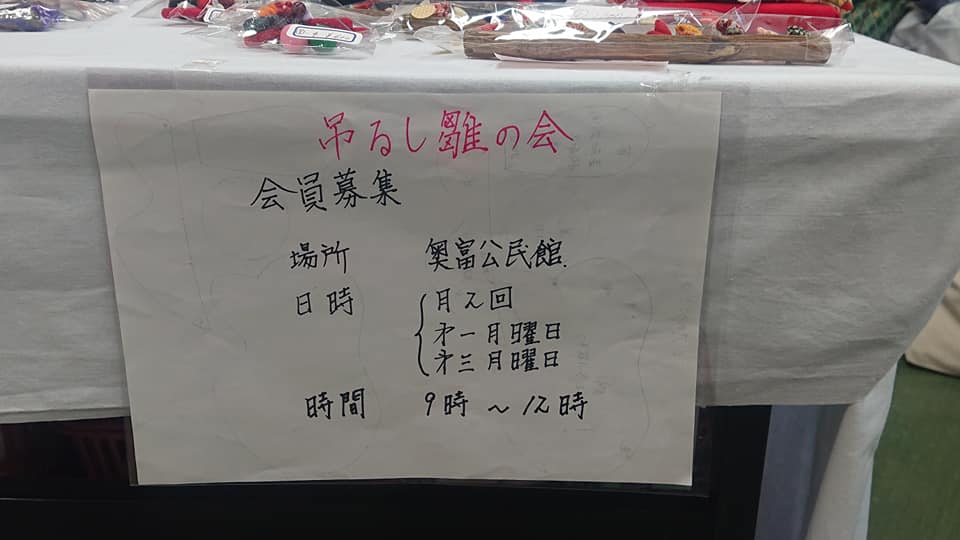 吊るし雛の会
会員募集
場所 奥富公民館.
日時 月2回
才一月曜日
才三月曜日
時間 9時~12時